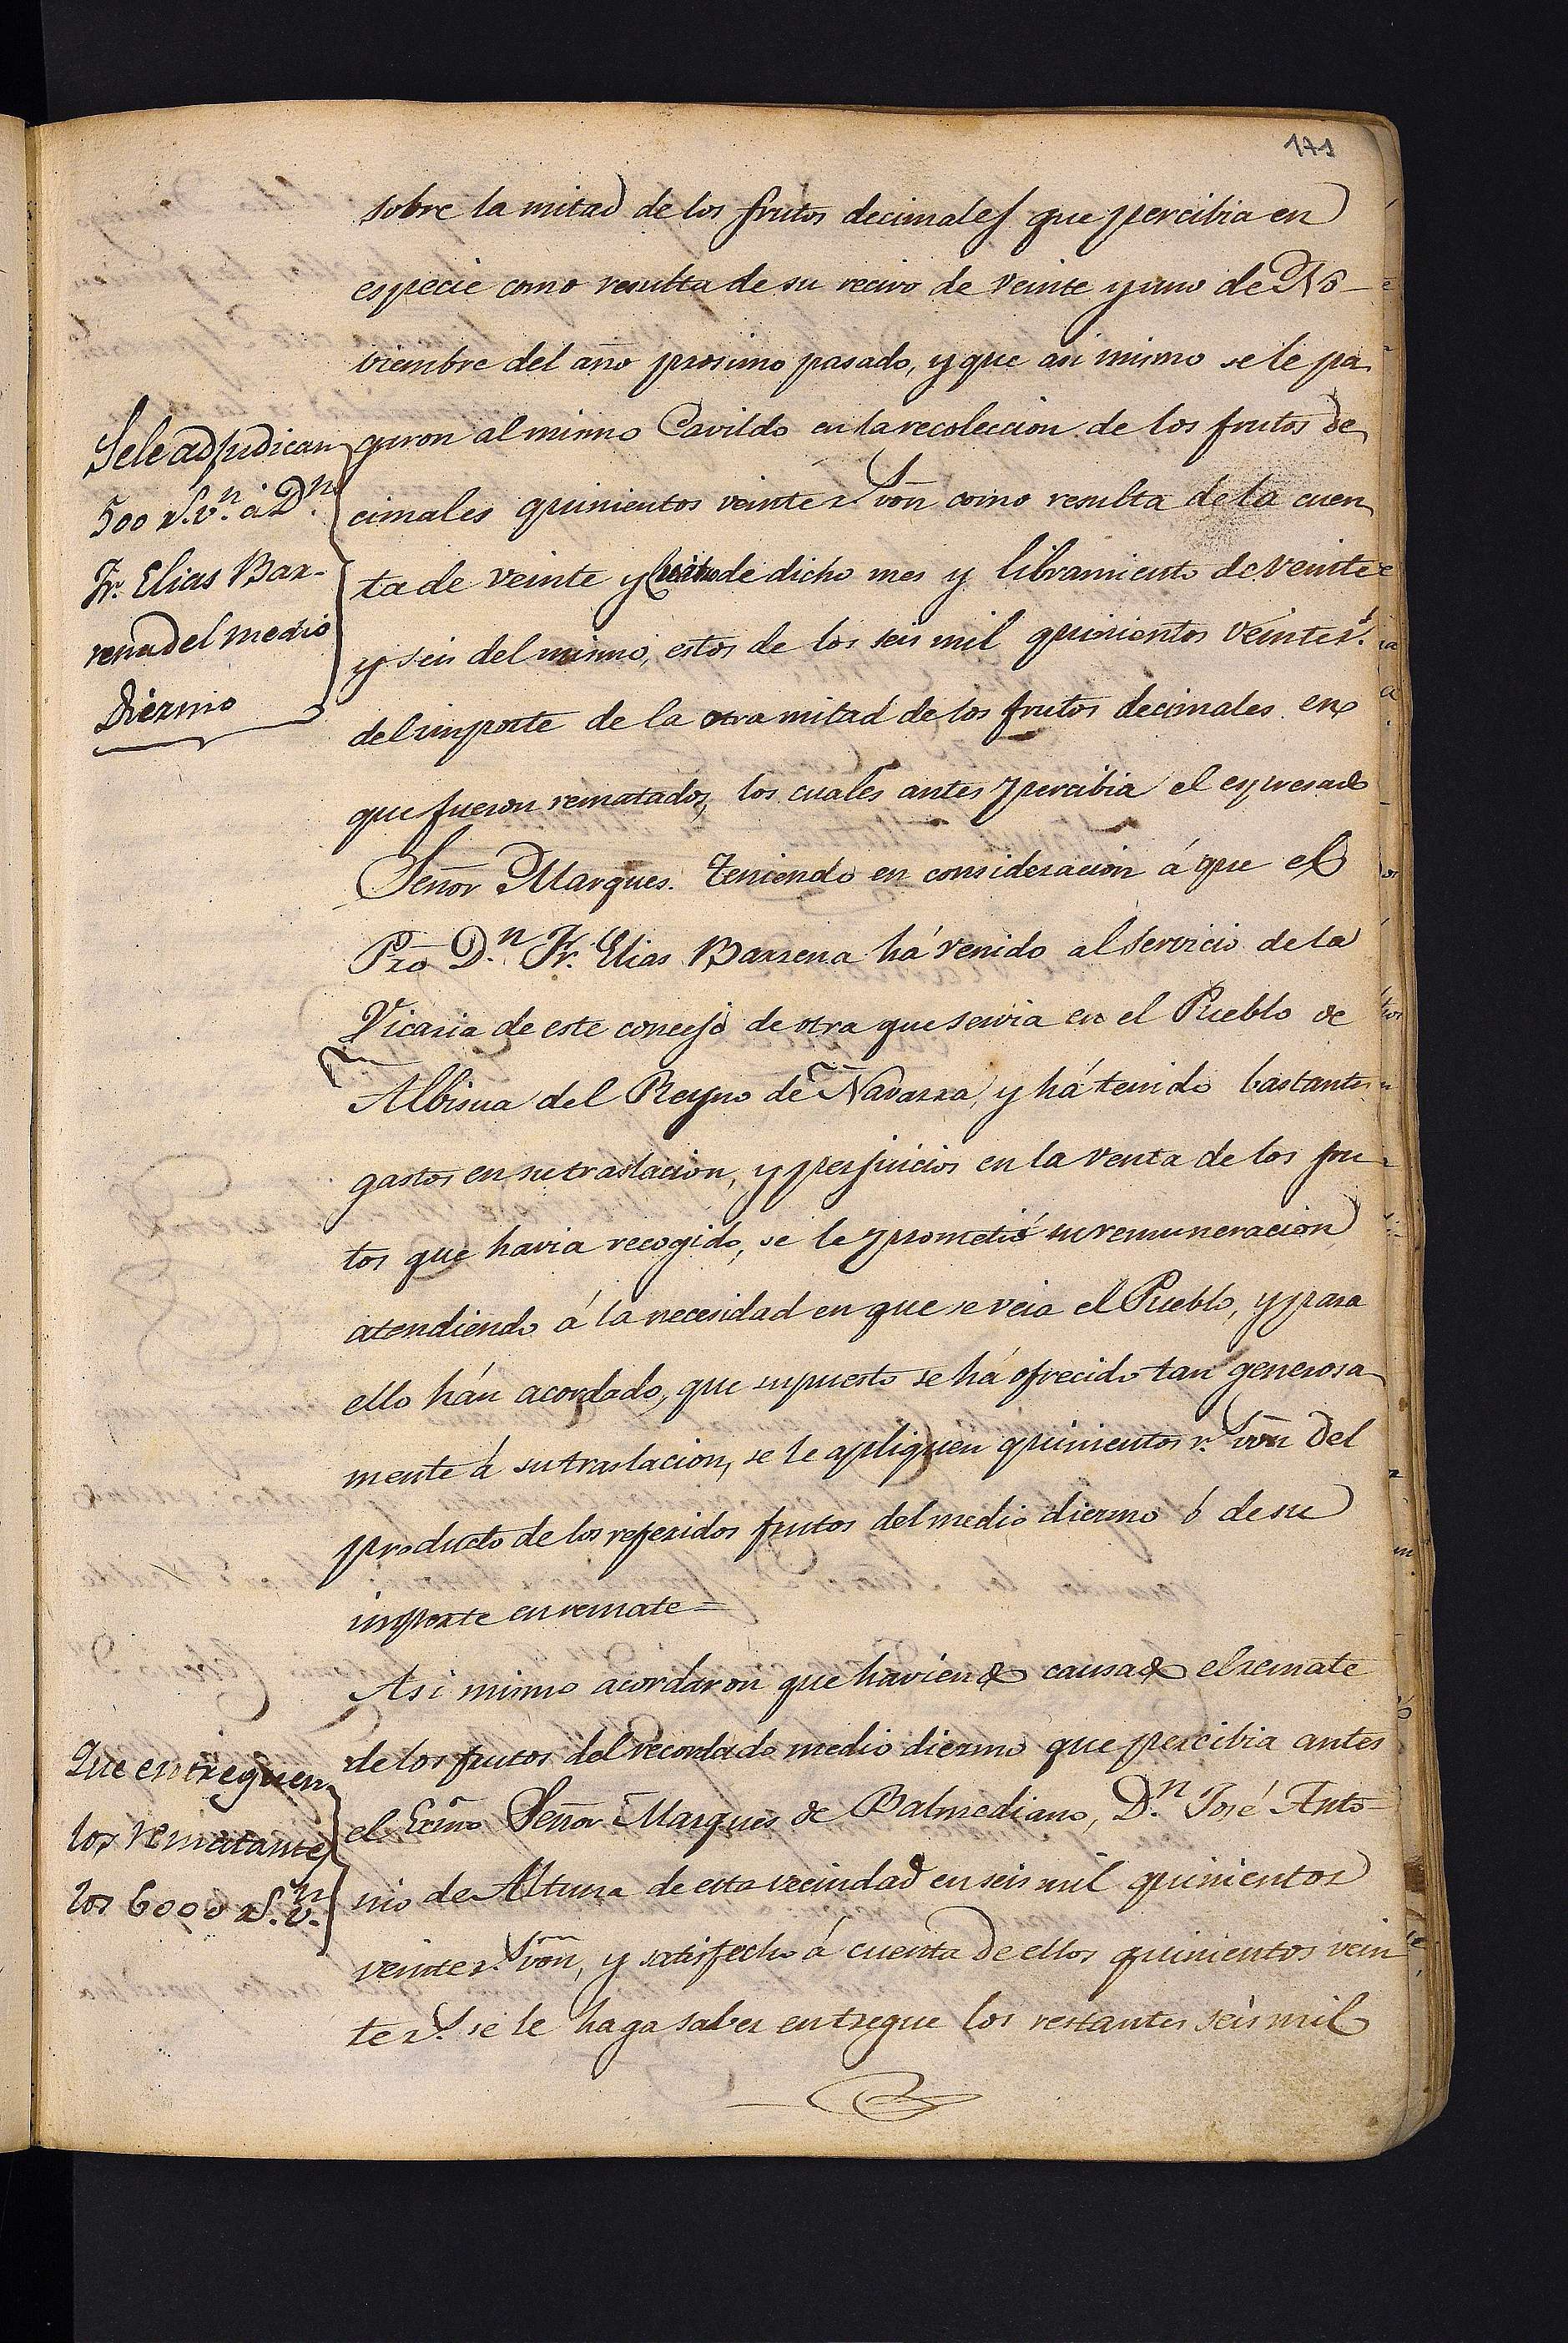 171
sobre la mitad de los frutos decimales que percibia en
especie como resulta de su recivo de veinte y uno de No-
viembre del año prosimo pasado, y que asi mismo se le pa
Se le adjudican
500 rs. vn. á Dn.
Fr. Elias Bar-
rena del medio
Diezmo
garon al mismo Cavildo en la recoleccion de los frutos de
cimales quinientos veinte rs. von como resulta de la cuen
ta de veinte y de dicho mes y libramiento de veinte
y seis del mismo, estos de los seis mil quinientos veinte rs.
del importe de la otra mitad de los frutos decimales en
que fueron rematados, los cuales antes percibia el expresado
Señor Marques. Teniendo en consideracion á que el
Pro Dn. Fr. Elias Barrena há venido al servicio de la
Vicaria de este concejo de otra que servia en el Pueblo de
Albisua del Reyno de Navarra, y há tenido bastantes
gastos en su traslacion, y perjuicios en la venta de los fru-
tos que havia recogido, se le prometió su remuneracion
atendiendo á la necesidad en que se veia el Pueblo, y para
ello hán acordado, que supuesto se há ofrecido tan generosa
mente á su traslacion, se le apliquen quinientos r. von del
producto de los referidos frutos del medio diezmo ó de su
importe en remate=
Asi mismo acordaron que haviendo causado el remate
Que entreguen
los rematantes
los 6000 rs. vn.
de los frutos del recordado medio diezmo que percibia antes
el Exmo Señor Marques de Balmediano, Dn. José Anto-
nio de Altuna de esta vecindad en seis mil quinientos
veinte rs. von, y satisfecho á cuenta de ellos quinientos vein
te rs. se le haga saber entregue los restantes seis mil